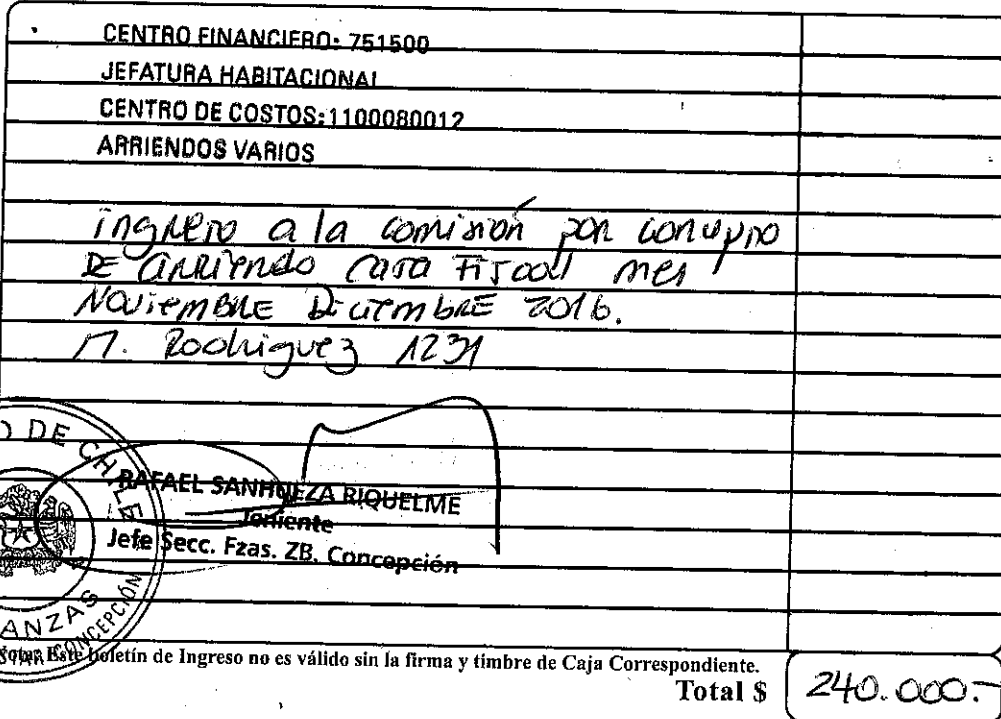 CENTRO FINANCIERO: 751500
JEFATURA HABITACIONAL
CENTRO DE COSTOS:1100080012
ARRIENDOS VARIOS
ingreso a la comisión por concepto
DE arriendo casa Fiscal mes
NOviEMBRE DiciEMbRE 2016.
M. Rodriguez 1231
O DE CHILE
RAFAEL SANHUEZA RIQUELME
Teniente
Jefe Secc. Fzas. ZB. Concepción
ANZAS
CONCEPCIÓN
Nota: Este boletín de Ingreso no es válido sin la firma y timbre de Caja Correspondiente.
Total $ 240.000.-